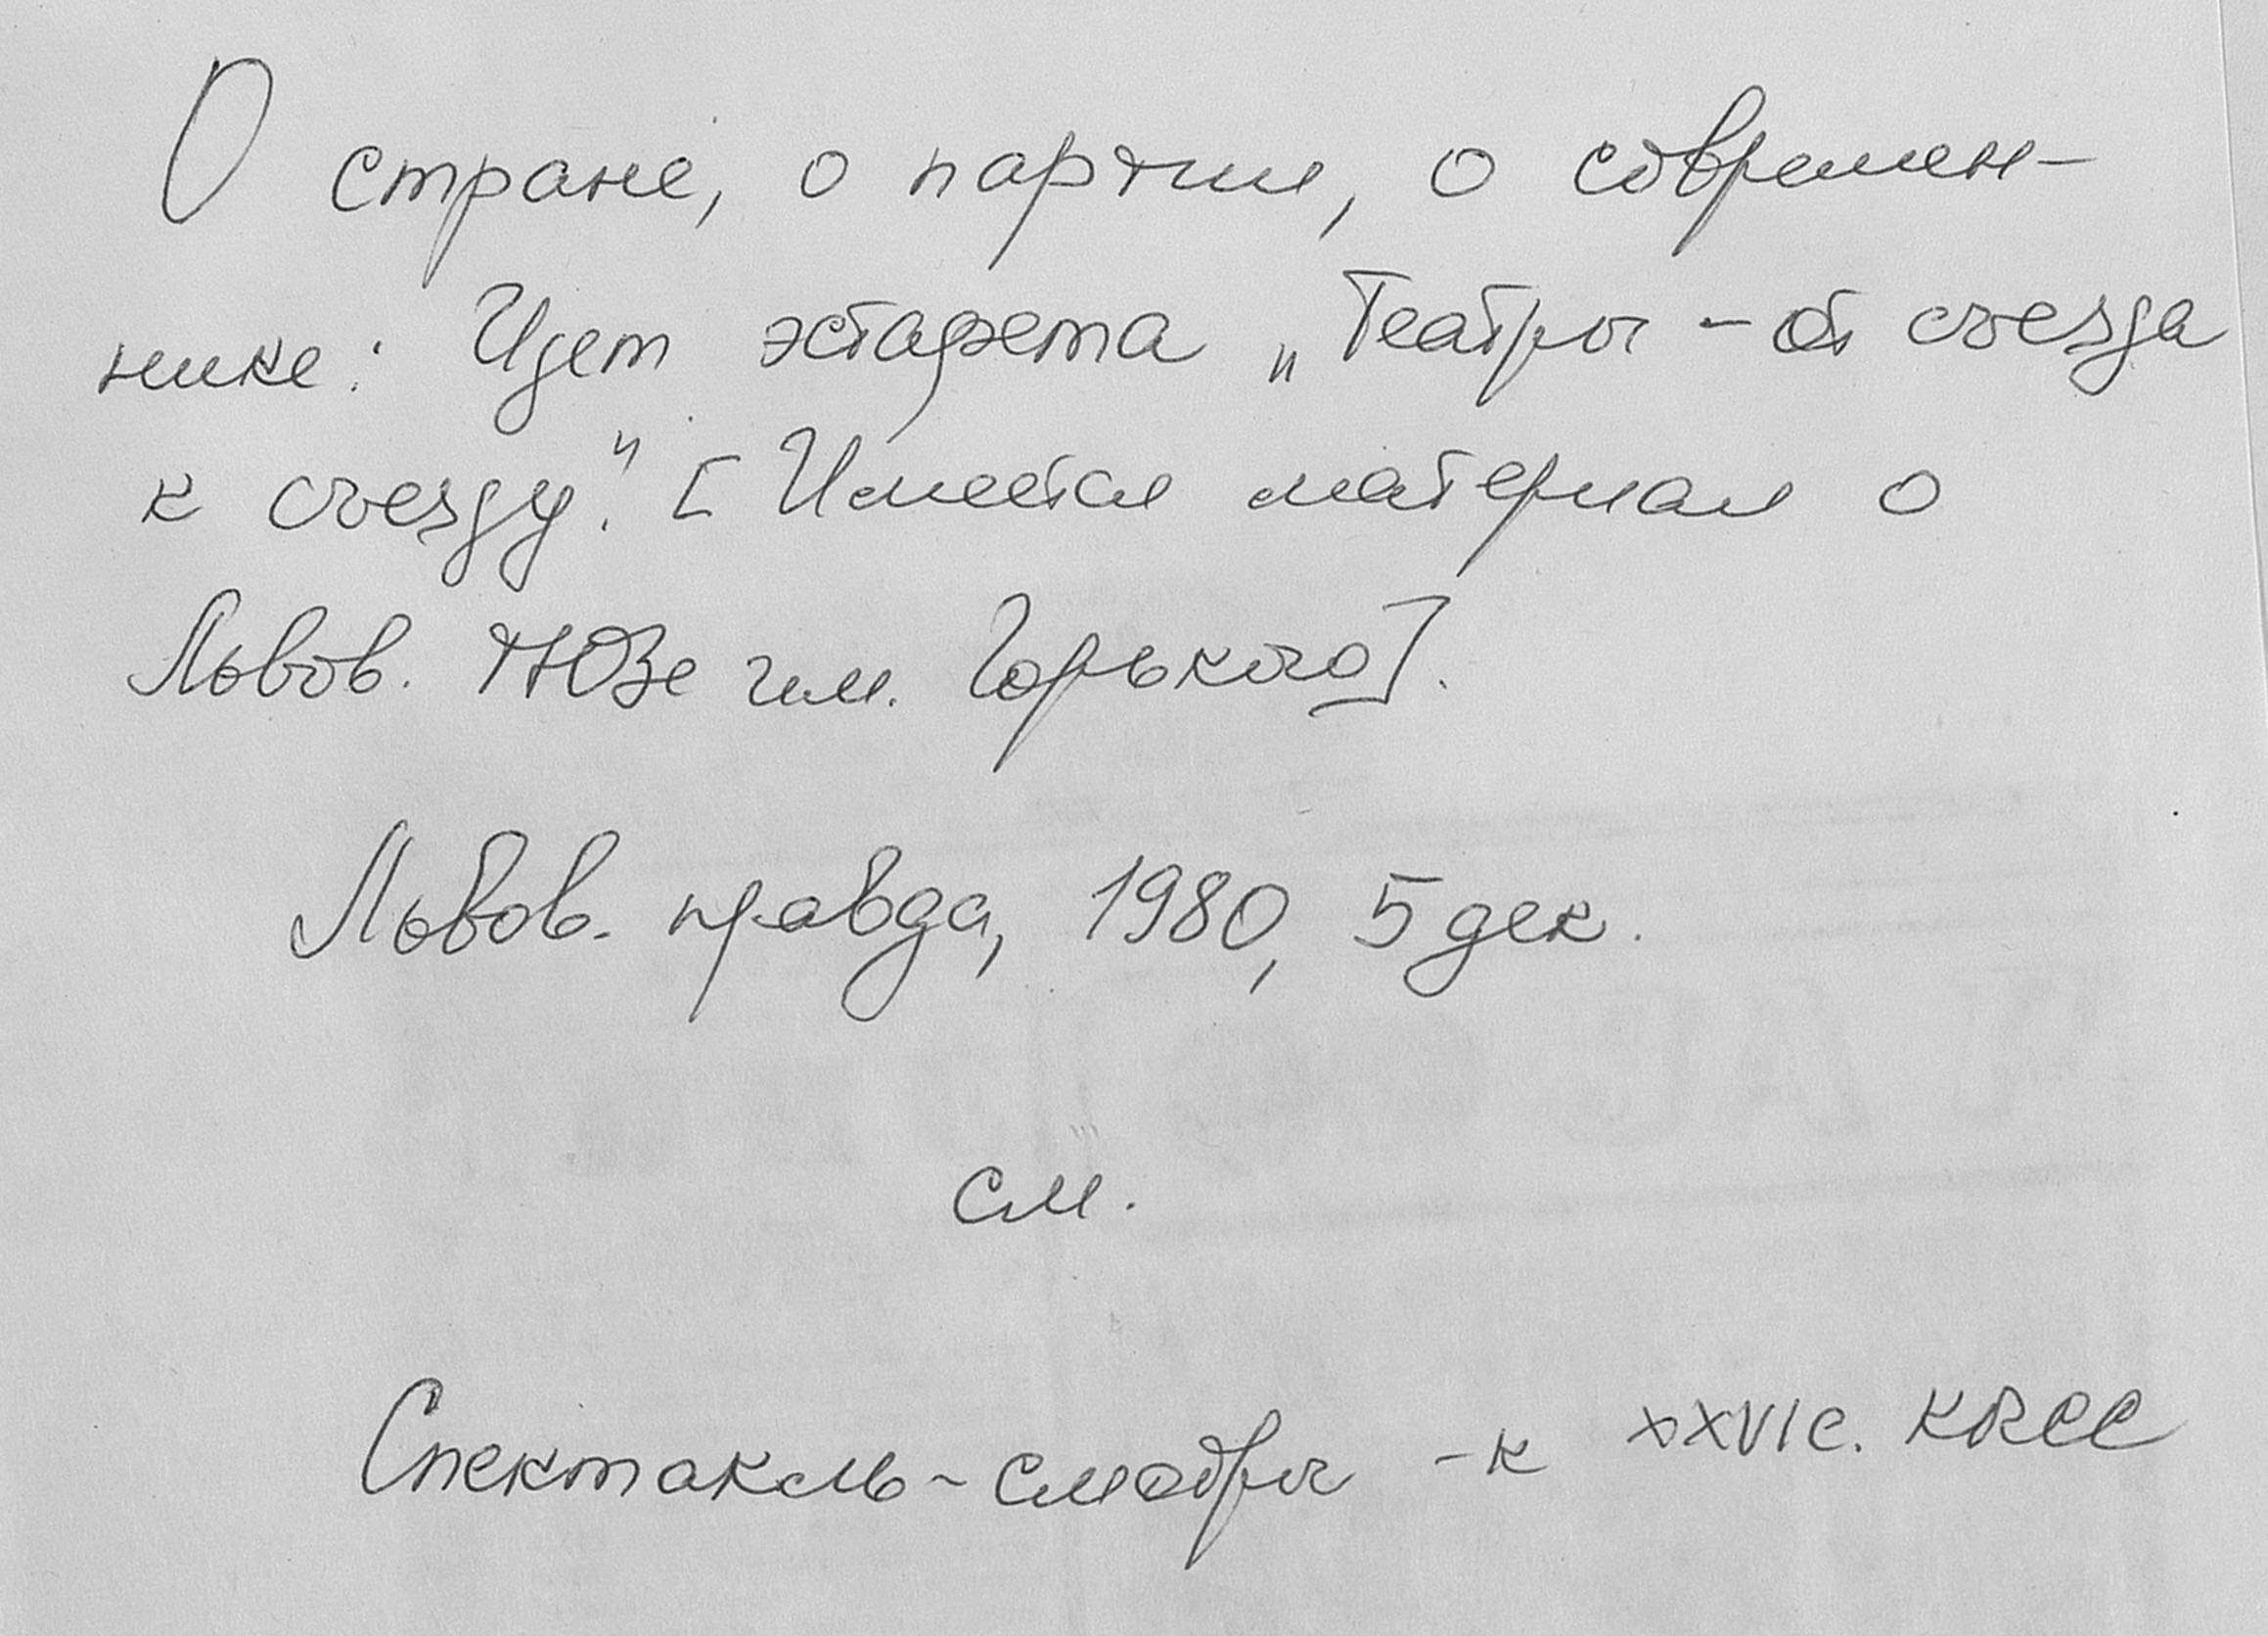 О стране, о партии, о современ-
нике: Идет эстафета „Театры – от съезда
к съезду." [Имеется материал о
Львов. ТЮЗе им. Горького].
Львов. правда, 1980, 5 дек.
см.
Спектакль-смотры – к XXVI с. КПСС